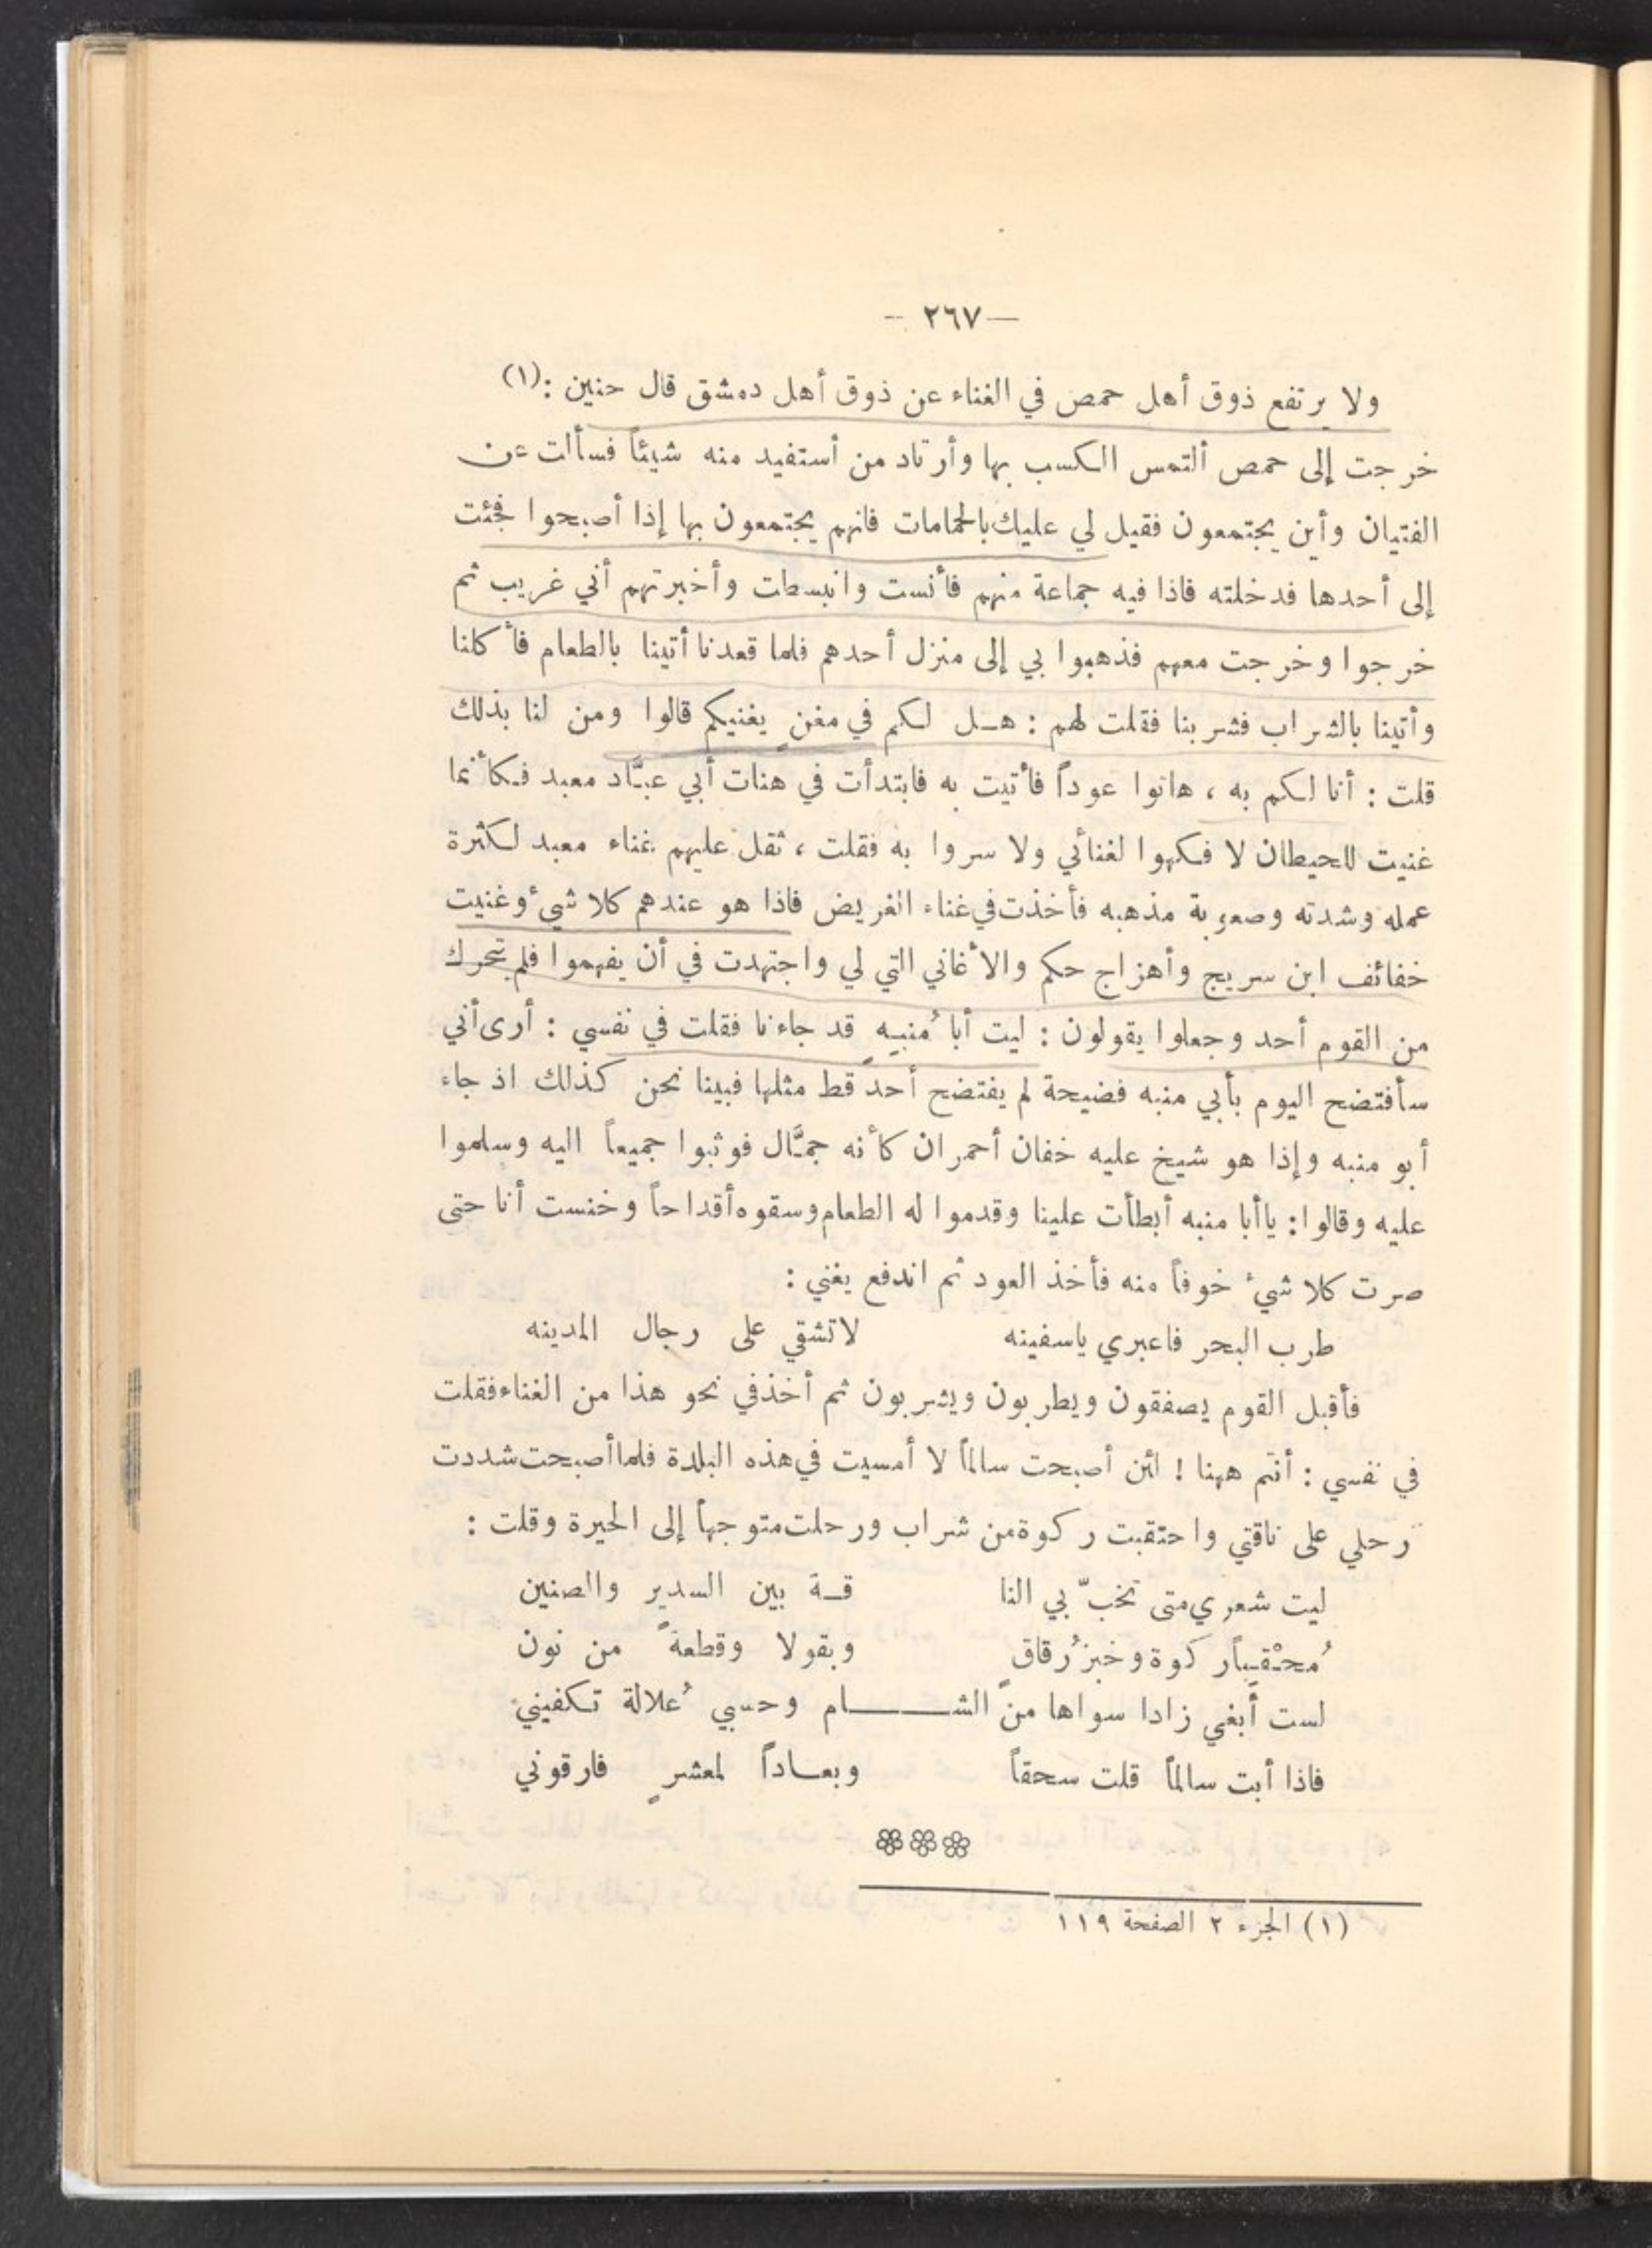 — ٢٦٧ —
ولا يرتفع ذوق أهل حمص في الغناء عن ذوق أهل دمشق قال حنين :(١)
خرجت إلى حمص ألتمس الكسب بها وأرتاد من أستفيد منه شيئاً فسألت عن
الفتيان وأين يجتمعون فقيل لي عليك بالحمامات فانهم يجتمعون بها إذا أصبحوا فجئت
إلى أحدها فدخلته فاذا فيه جماعة منهم فأنست وانبسطت وأخبرتهم أني غريب ثم
خرجوا وخرجت معهم فذهبوا بي إلى منزل أحدهم فلما قعدنا أتينا بالطعام فأكلنا
وأتينا بالشراب فشربنا فقلت لهم : هـل لكم في مغنٍ يغنيكم قالوا ومن لنا بذلك
قلت : أنا لكم به ، هاتوا عوداً فأتيت به فابتدأت في هنات أبي عبَّاد معبد فكأنما
غنيت للحيطان لا فكهوا لغنائي ولا سروا به فقلت ، ثقل عليهم غناء معبد لكثرة
عمله وشدته وصعوبة مذهبه فأخذت في غناء الغريض فاذا هو عندهم كلا شيء وغنيت
خفائف ابن سريج وأهزاج حكم والأغاني التي لي واجتهدت في أن يفهموا فلم يتحرك
من القوم أحد وجعلوا يقولون : ليت أبا مُنبِهٍ قد جاءنا فقلت في نفسي : أرى أني
سأفتضح اليوم بأبي منبه فضيحة لم يفتضح أحد قط مثلها فبينا نحن كذلك اذ جاء
أبو منبه وإذا هو شيخ عليه خفان أحمران كأنه جمَّال فوثبوا جميعاً اليه وسلموا
عليه وقالوا: ياأبا منبه أبطأت علينا وقدموا له الطعام وسقوه أقداحاً وخنست أنا حتى
صرت كلا شيء خوفاً منه فأخذ العود ثم اندفع يغني :
طرب البحر فاعبري ياسفينه لاتشقي على رجال المدينه
فأقبل القوم يصفقون ويطربون ويشربون ثم أخذ في نحو هذا من الغناء فقلت
في نفسي : أنتم ههنا ! لئن أصبحت سالماً لا أمسيت في هذه البلدة فلما أصبحت شددت
رحلي على ناقتي واحتقبت ركوة من شراب ورحلت متوجهاً إلى الحيرة وقلت :
ليت شعري متى تخبّ بي النا قـة بين السدير والصنين
مُحْقِباً ركوة وخبز رُقاقٍ وبقولا وقطعةً من نون
لست أبغي زادا سواها من الشـــام وحسبي عُلالة تكفيني
فاذا أبت سالماً قلت سحقاً وبعـاداً لمعشرٍ فارقوني
(١) الجزء ٢ الصفحة ١١٩